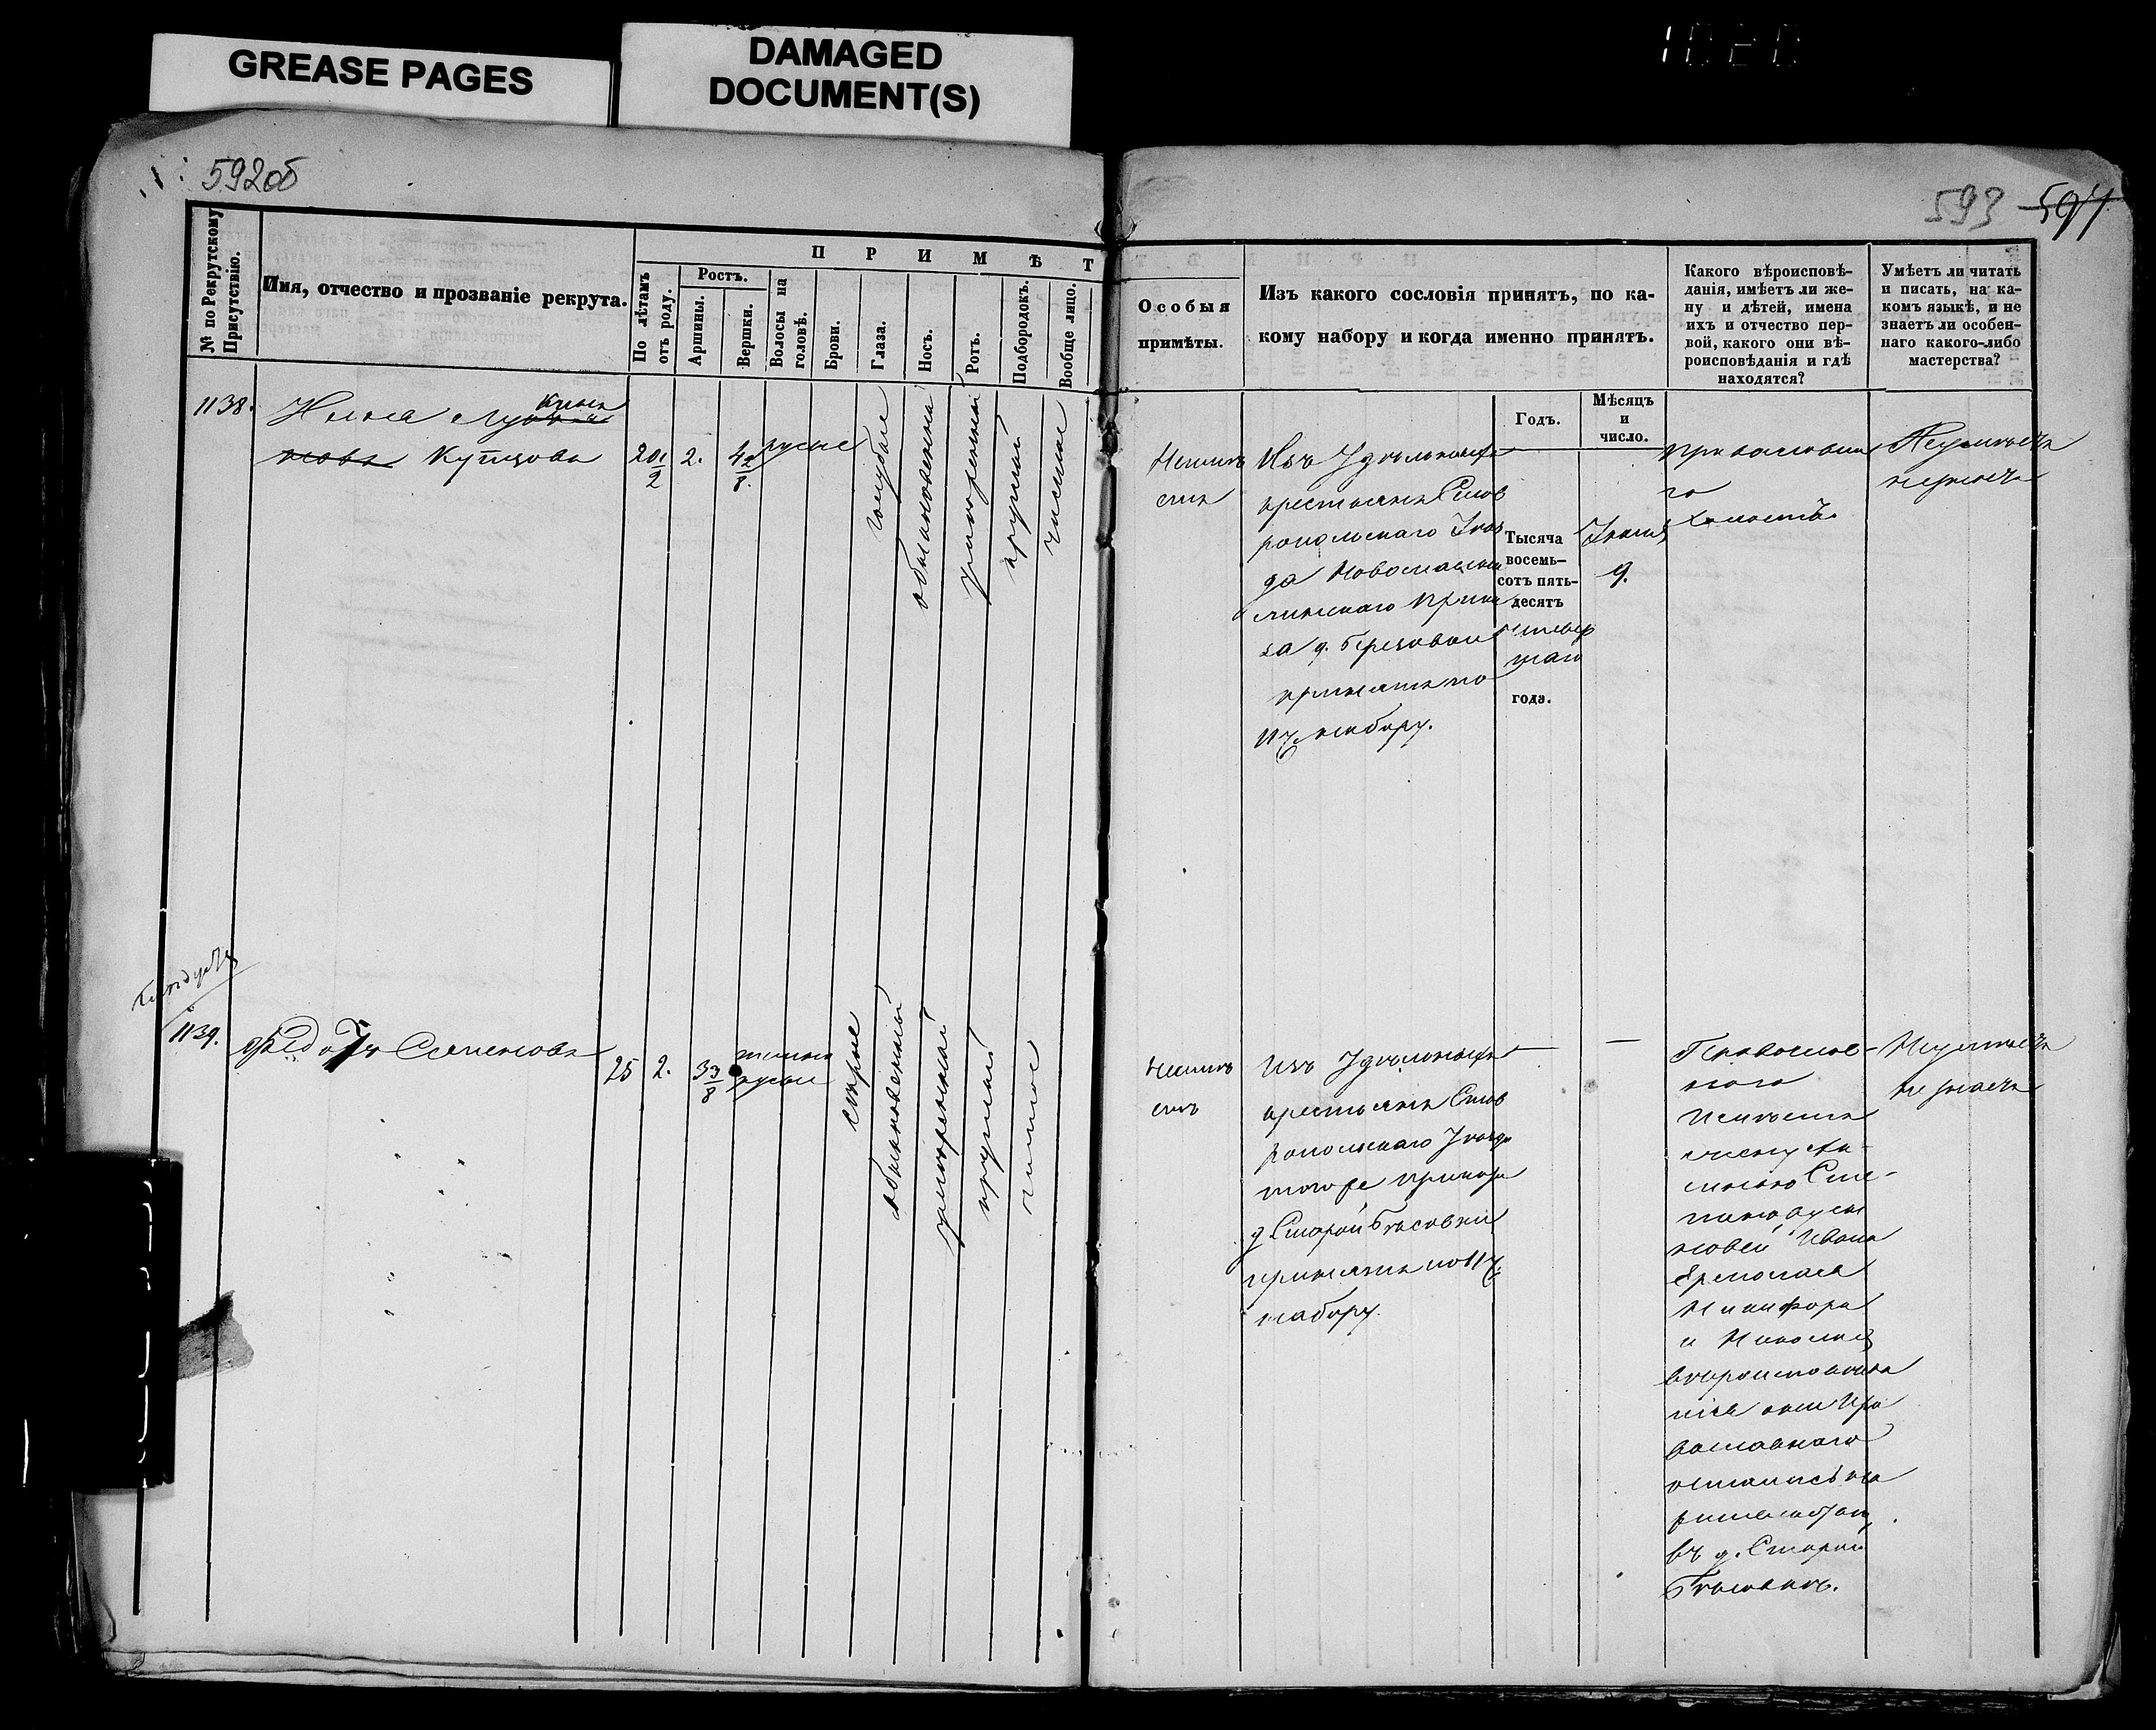 GREASE PAGES
DAMAGED
DOCUMENT(S)
1020
592об
593 594
№ по Рекрутскому
Присутствію.
Имя, отчество и прозваніе рекрута.
П Р И М Ѣ Т
По лѣтамъ
отъ роду.
Ростъ.
Аршины.
Вершки.
Волосы на
головѣ.
Брови.
Глаза.
Носъ.
Ротъ.
Подбородокъ.
Вообще лицо.
Особыя
примѣты.
Изъ какого сословія принятъ, по ка-
кому набору и когда именно принятъ.
Какого вѣроисповѣ-
данія, имѣетъ ли же-
ну и дѣтей, имена
ихъ и отчество пер-
вой, какого они вѣ-
роисповѣданія и гдѣ
находятся?
Умѣетъ ли читать
и писать, на ка-
комъ языкѣ, и не
знаетъ ли особен-
наго какого-либо
мастерства?
Годъ.
Мѣсяцъ
и
число.
1138.
Купцовъ
20 1/2
2.
4 2/8
русые
голубые
обыкновенный
умѣренный
круглый
чистое
Неимѣ
етъ
Изъ Удѣльныхъ
крестьянъ Став
ропольскаго Уѣз
да
Прика
за д. Березовки
принятъ по
11 набору.
Тысяча
восемь-
сотъ пять-
десятъ
четвер
таго
года.
Іюня
9.
Православна
го
холостъ
Неумѣетъ
незнаетъ
1139.
Федотъ Семеновъ
25
2.
3 3/8
темно
русые
сѣрые
обыкновенный
умѣренный
круглый
чистое
Неимѣ
етъ
Изъ Удѣльныхъ
крестьянъ Став
ропольскаго Уѣзда
тогоже приказа
д Старой Бѣсовки
принятъ по 11
набору.
—
—
Православ-
наго
Имѣетъ
жену
Сте-
пано
Ивана
Ермолая
Никифора
и Николая
вѣроисповѣда
нія они Пра
вославнаго
остались на
въ д. Старой
Бѣсовкѣ.
Неумѣетъ
не знаетъ